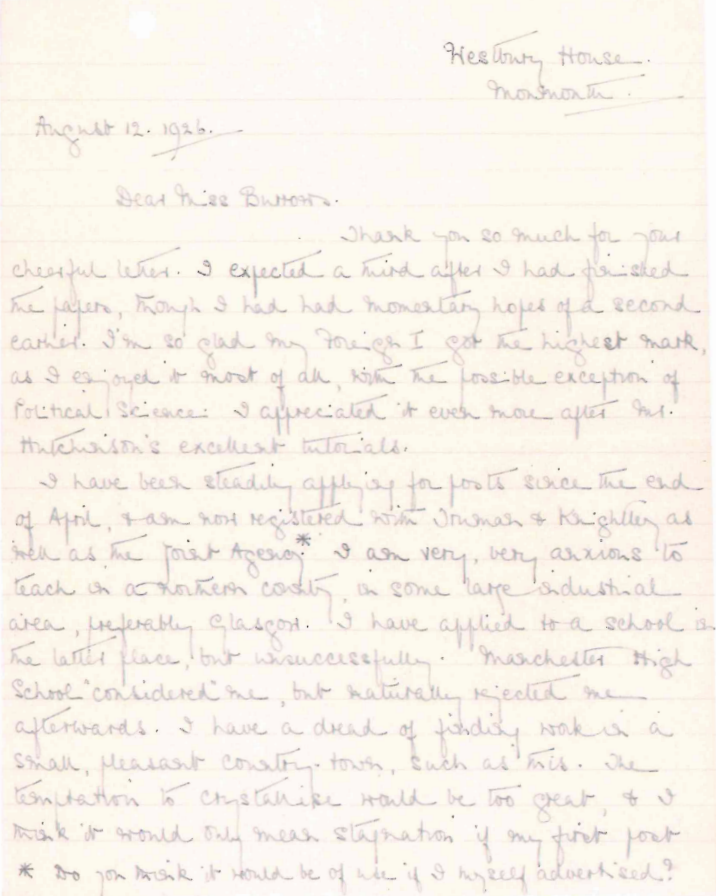 Westbury House.
Monmouth.
August 12. 1926.
Dear Miss Burrows.
Thank you so much for your
cheerful letter. I expected a third after I had finished
the papers, though I had had momentary hopes of a second
earlier. I'm so glad my Foreign I got the highest mark,
as I enjoyed it most of all, with the possible exception of
Political Science. I appreciated it even more after Mr.
Hutchinson's excellent tutorials.
I have been steadily applying for posts since the end
of April, & am now registered with Truman & Knightley as
well as the Joint Agency* I am very, very anxious to
teach in a northern county, in some large industrial
area, preferably Glasgow. I have applied to a school in
the latter place, but unsuccessfully. Manchester High
School "considered" me, but naturally rejected me
afterwards. I have a dread of finding work in a
small, pleasant country-town, such as this. The
temptation to crystallise would be too great, & I
think it would only mean stagnation if my first post
* Do you think it would be of use if I myself advertised?